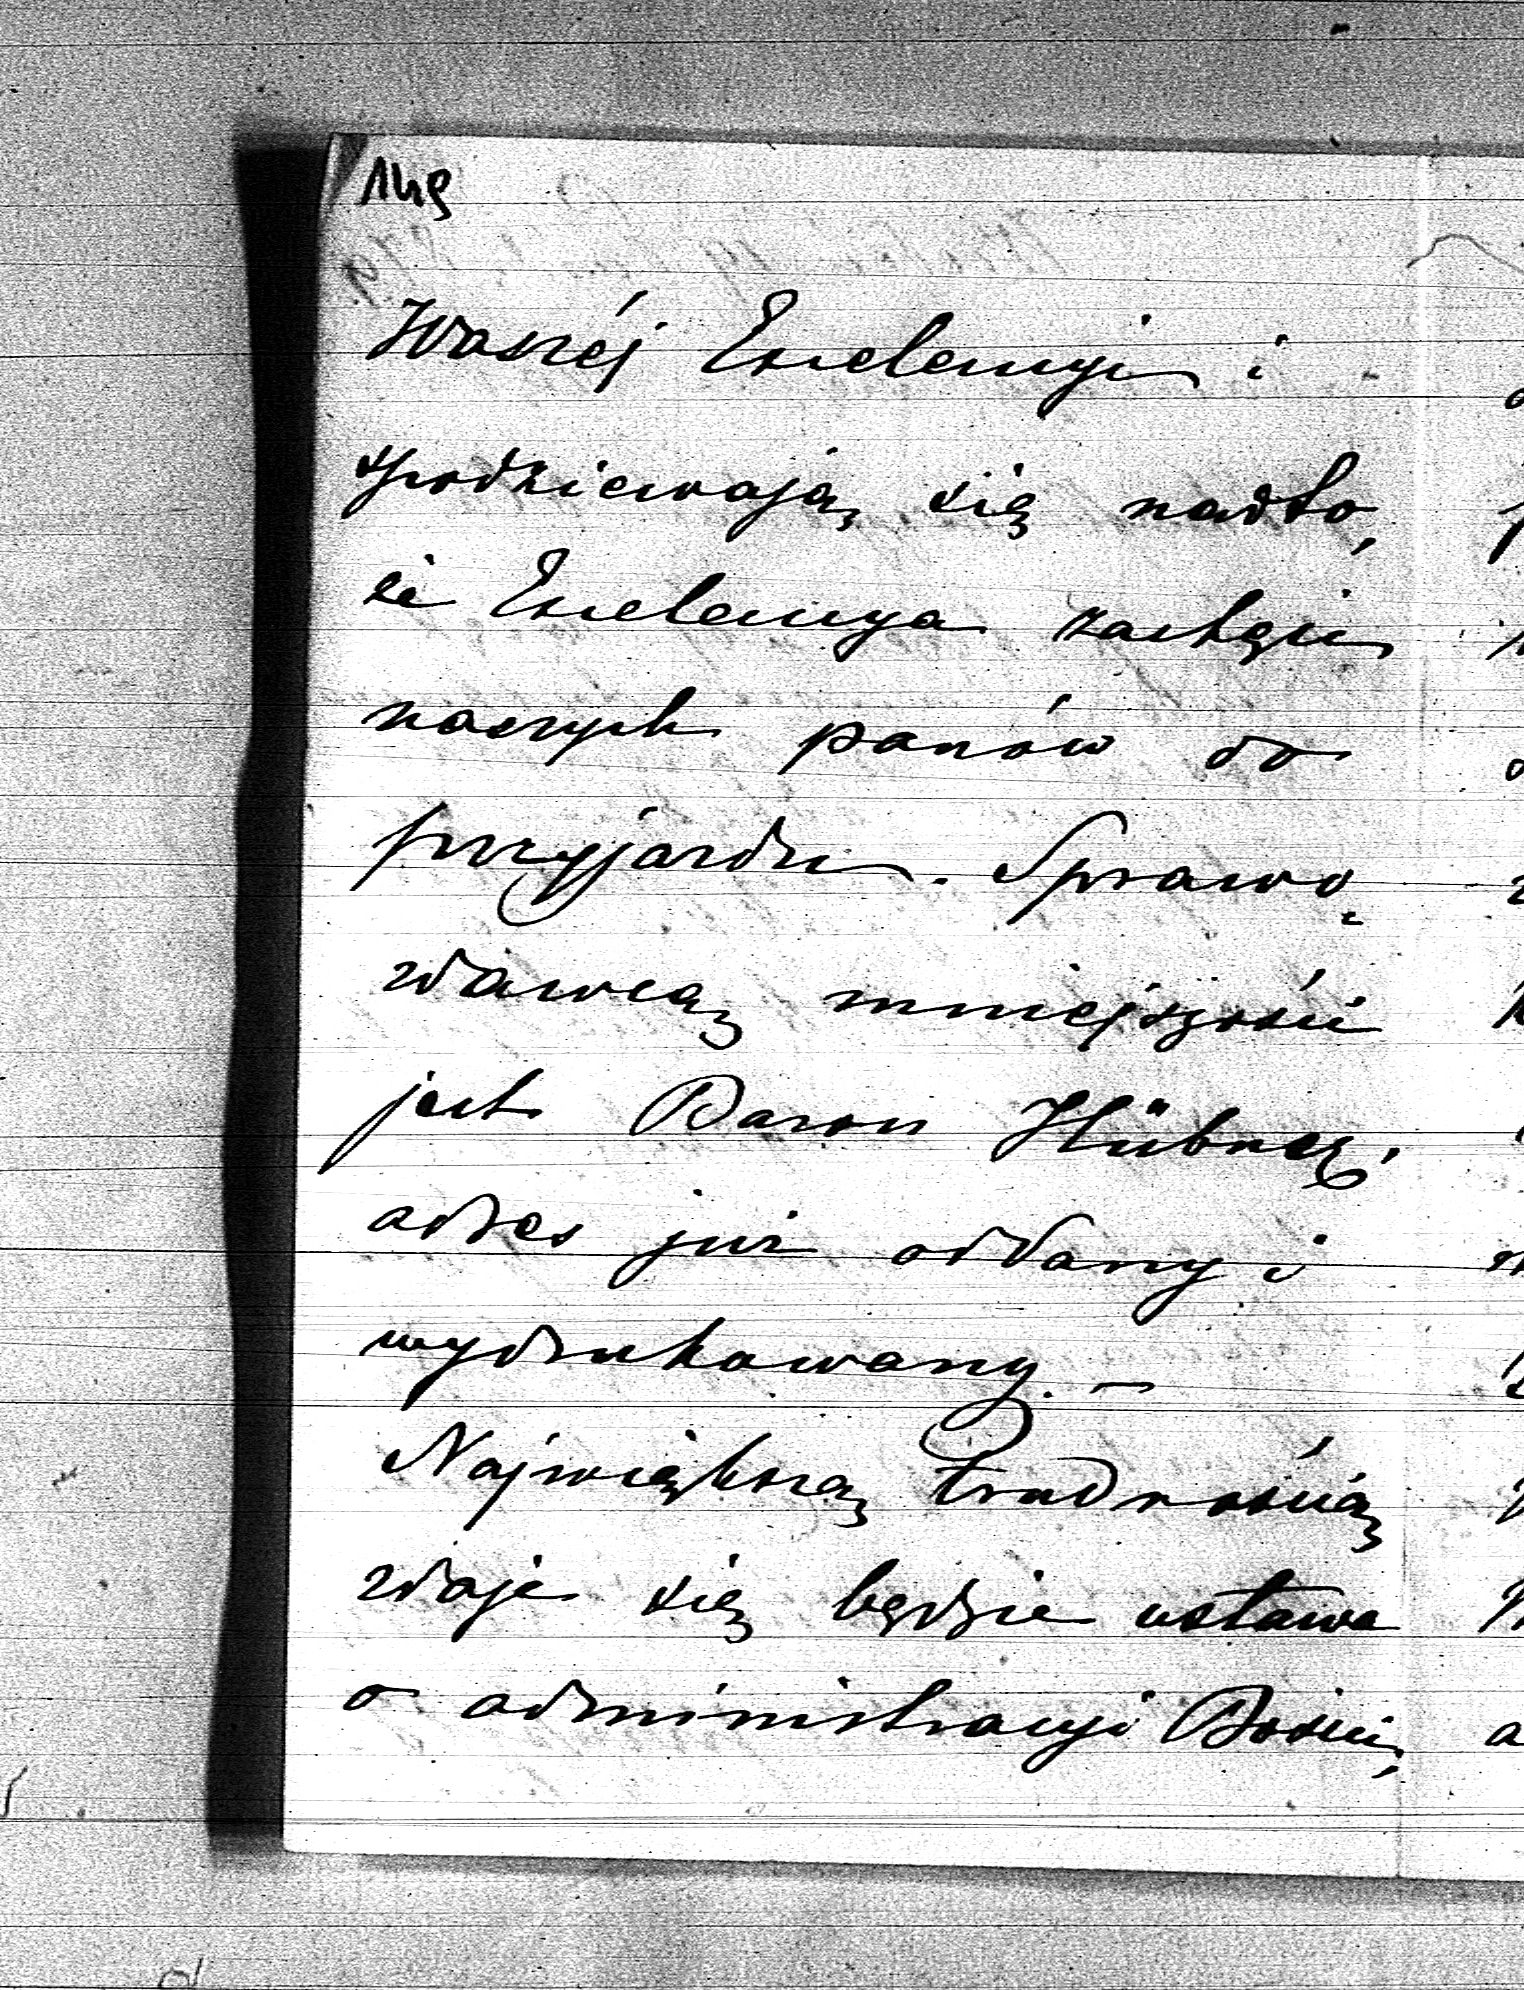 148
Waszéj Excelencyi i
spodziewają się nadto,
że Excelencya zachęci
naszych panów do
przyjazdu. Sprawo
zdawcą mniejszości
jest Baron Hübner,
adres już oddany i
wydrukowany. –
Największą trudnością
zdaje się będzie ustawa
o administracyi Bośni,